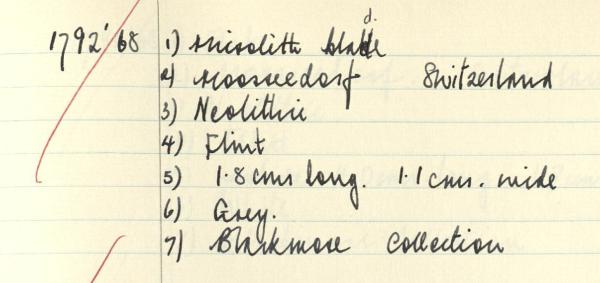 d.
1792'68 1) Microlith blade
2) Moosseedorf Switzerland
3) Neolithic
4) Flint
5) 1.8cms long. 1.1cms. wide
6) Grey.
7) Blackmore Collection